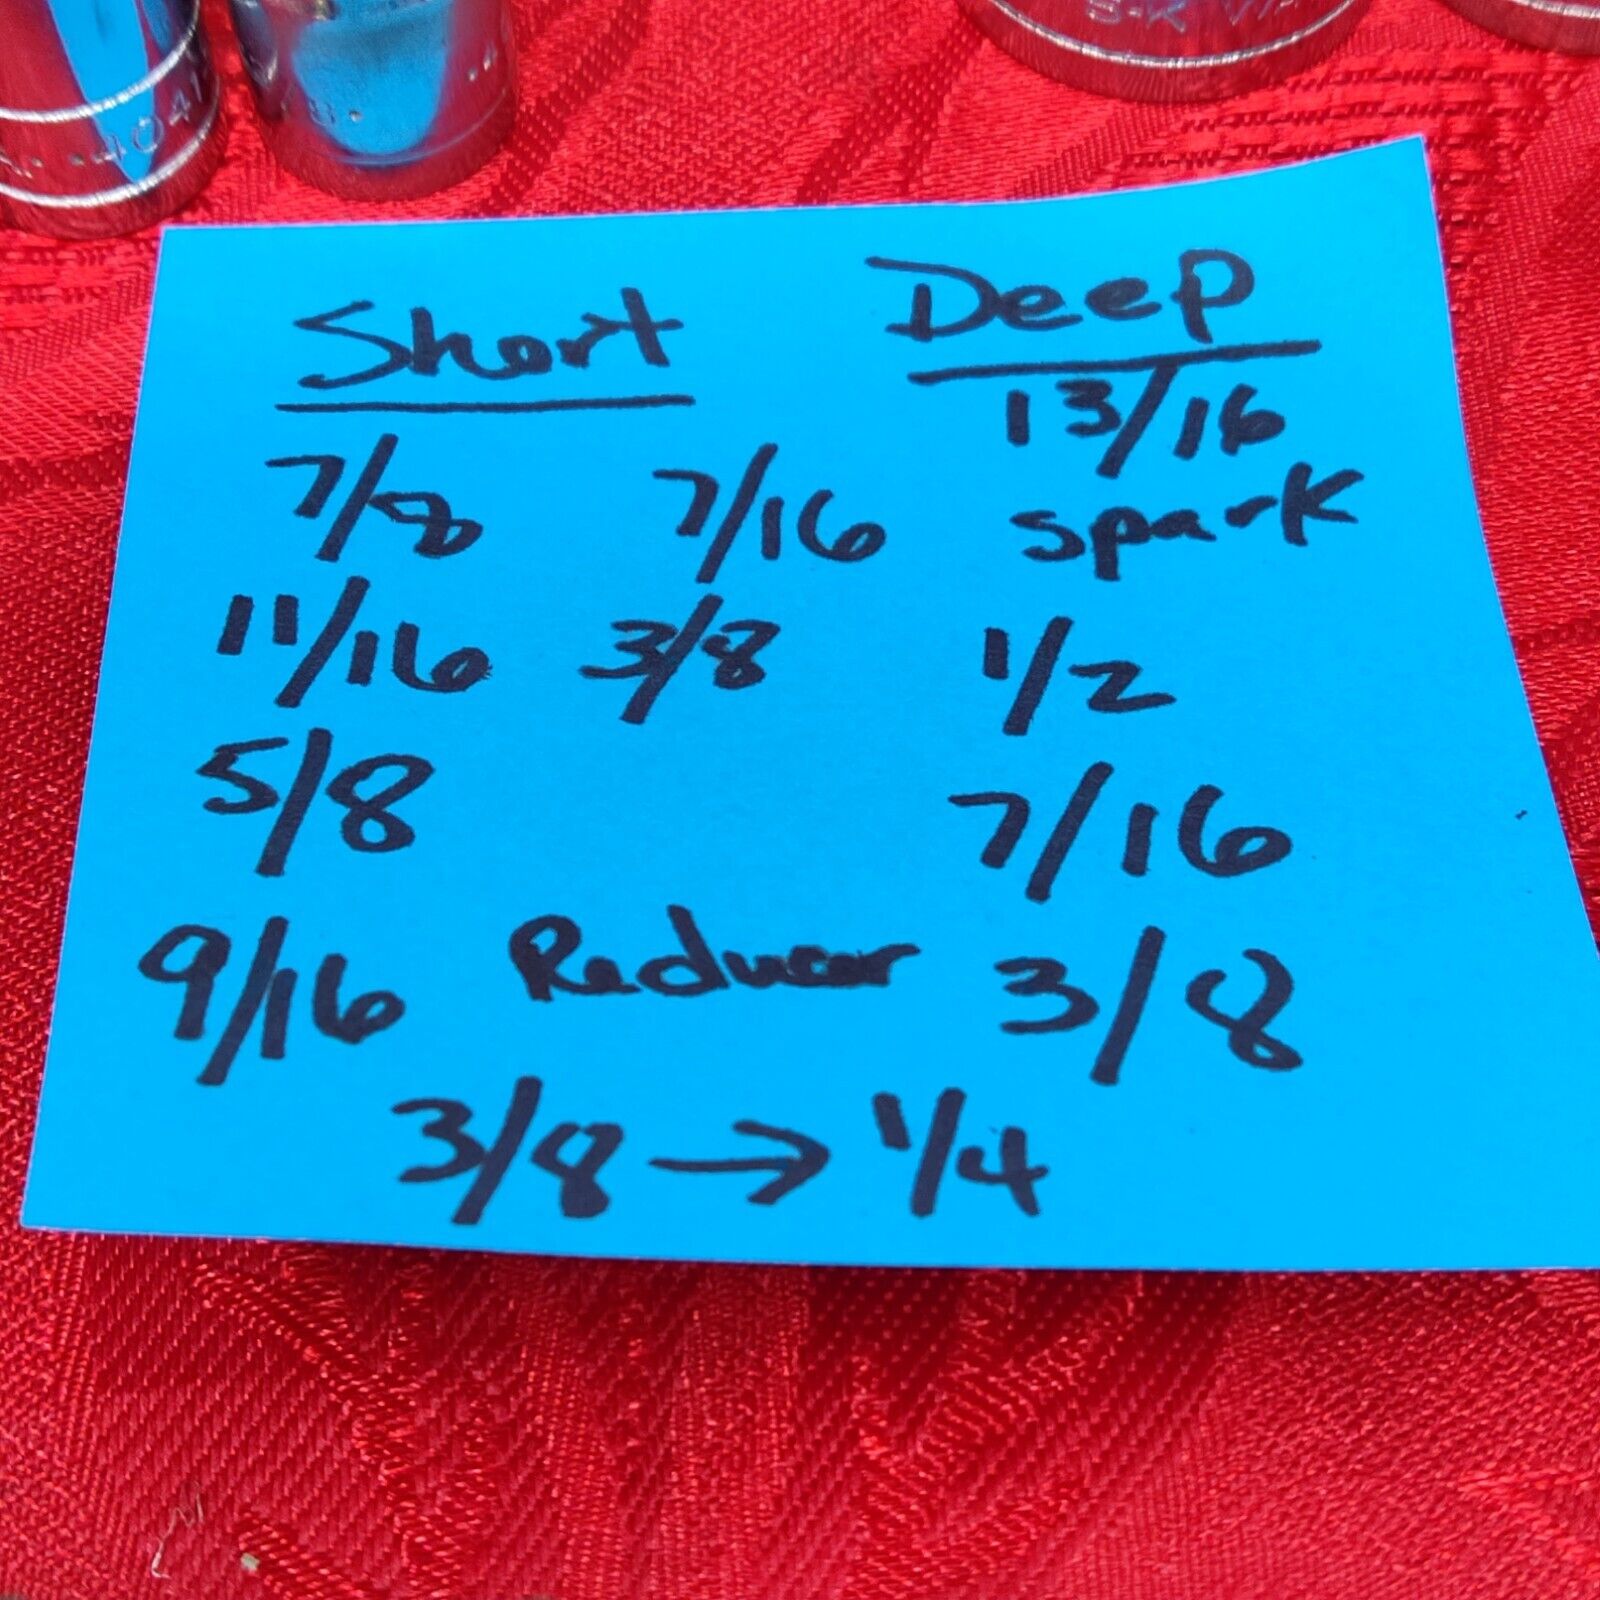 S-K
404
Short Deep
7/8 7/16 13/16
spark
11/16 3/8 1/2
5/8 7/16
9/16 Reducer 3/8
3/8 → 1/4